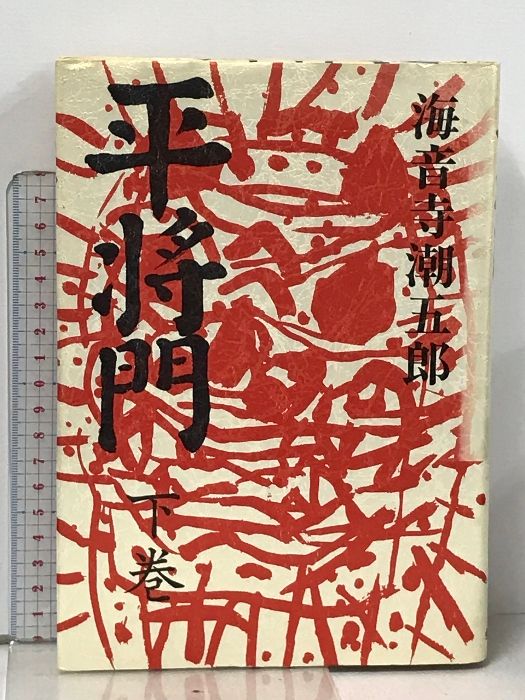 海音寺潮五郎
平将門
下巻